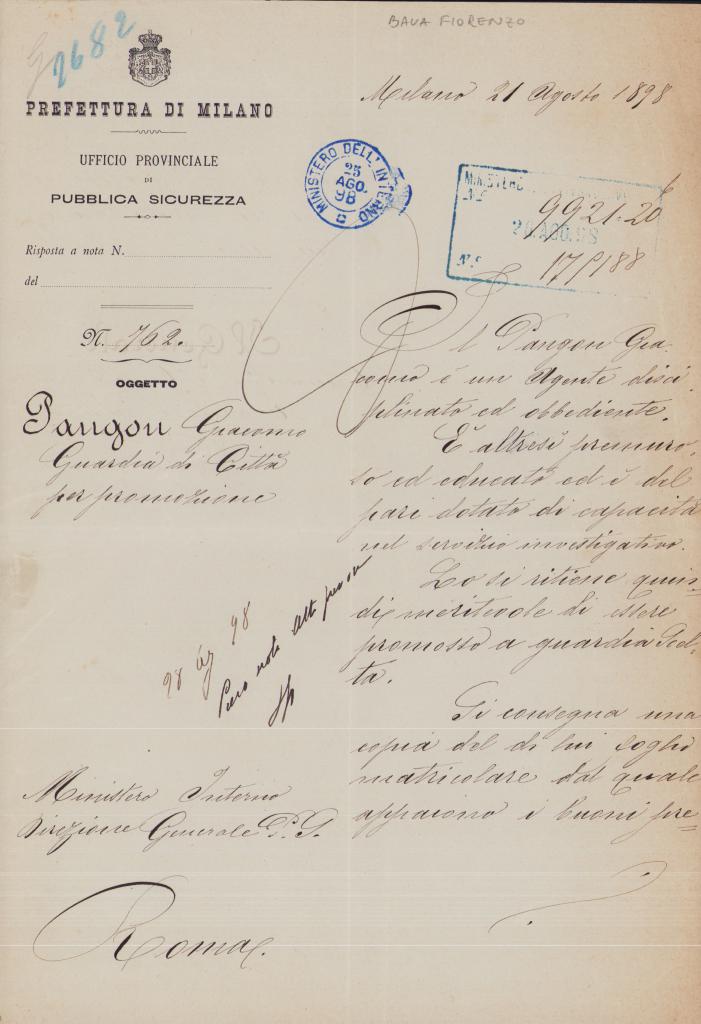 BAVA FIORENZO
2682
PREFETTURA DI MILANO
UFFICIO PROVINCIALE
DI
PUBBLICA SICUREZZA
Risposta a nota N.
del
N. 762.
OGGETTO
Pangon Giacomo
Guardia di Città
per promozione
Milano 21 Agosto 1898
MINISTERO DELL'INTERNO
25
AGO.
98
9921.20
26.AGO.98
17188
Il Pangon Gia-
como è un Agente disci
plinato ed obbediente.
È altresì premuro-
so ed educato ed è del
pari dotato di capacità
nel servizio investigativo.
Lo si ritiene quin-
di meritevole di essere
promosso a guardia Scel-
ta.
Si consegna una
copia del di lui foglio
matricolare dal quale
appaiono i buoni pre=
28 Ag 98
Ministero Interno
Direzione Generale P. S.
Roma